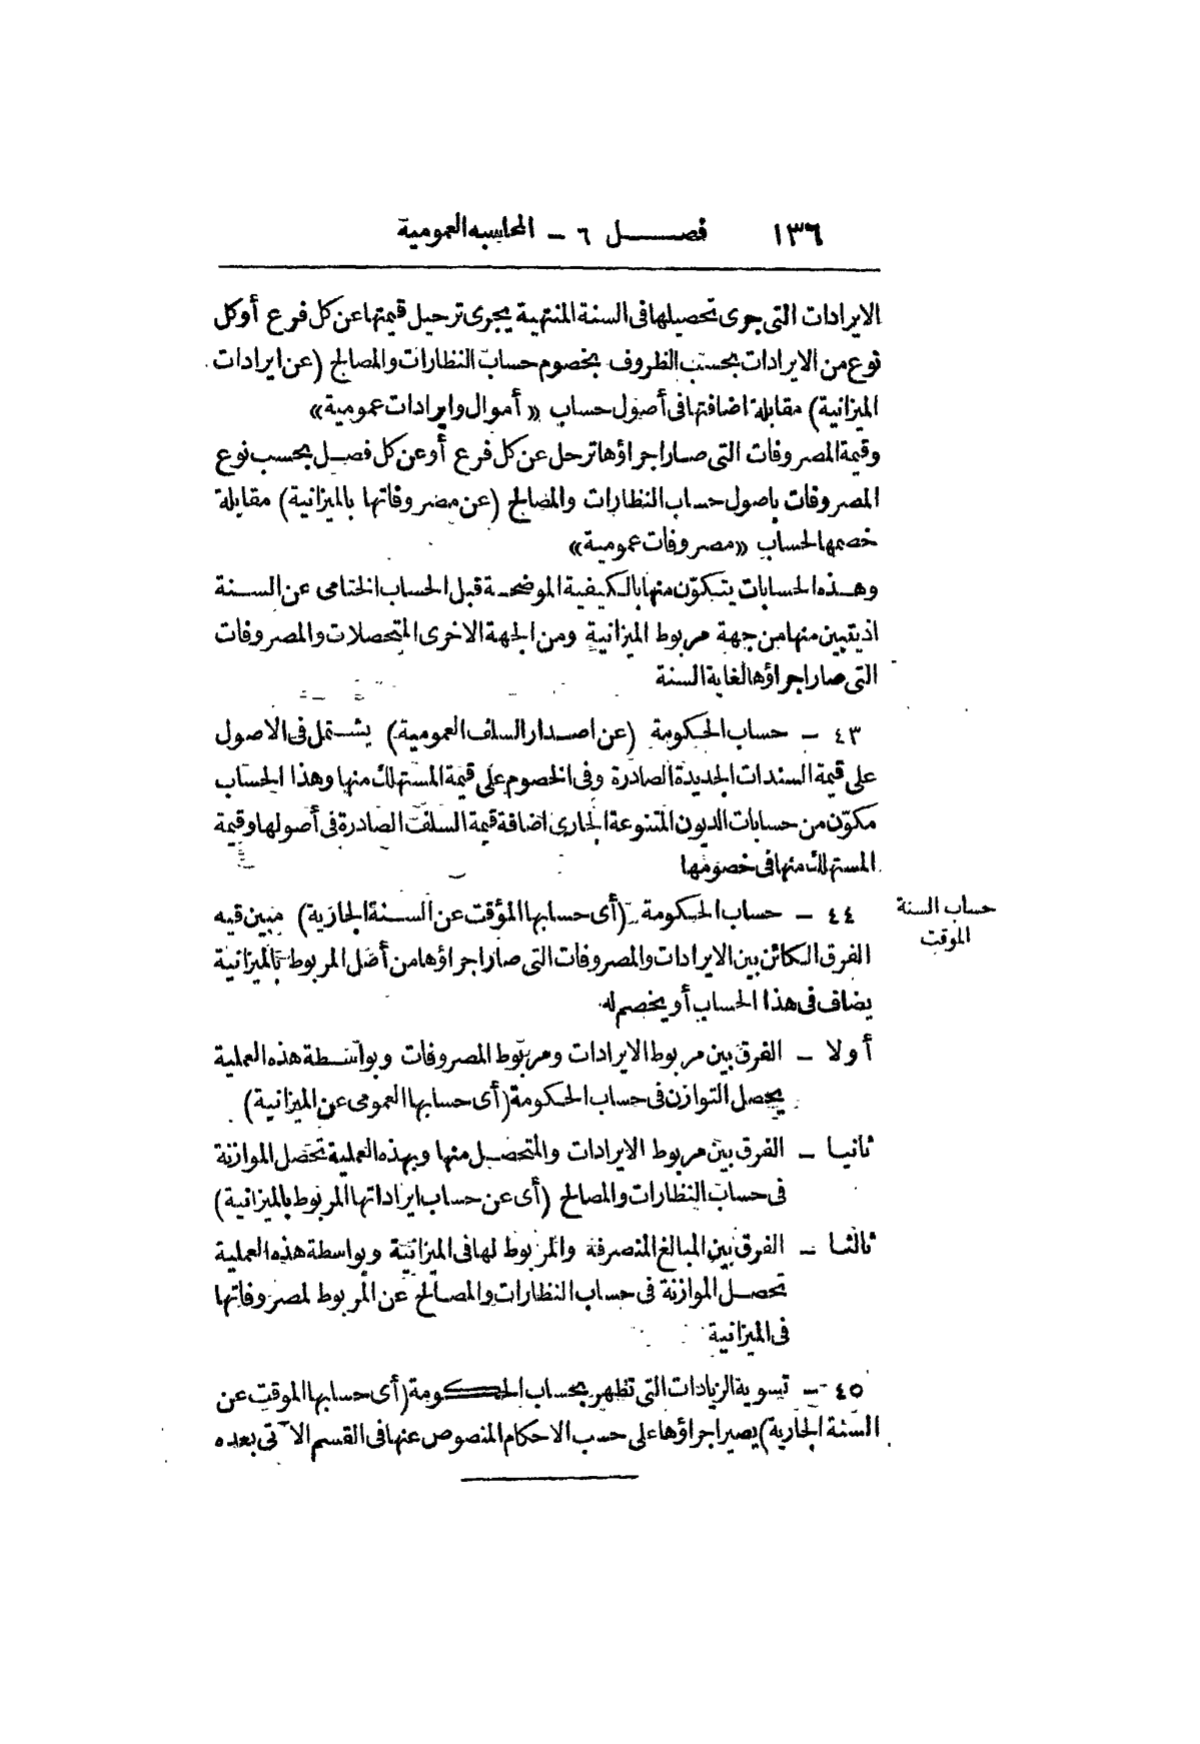 ١٣٦ فصل ٦ – المحاسبه العمومية
الايرادات التى جرى تحصيلها فى السنة المنتهية يجرى ترحيل قيمتها عن كل فرع أو كل
نوع من الايرادات بحسب الظروف بخصوم حساب النظارات والمصالح (عن ايرادات
الميزانية) مقابلة اضافتها فى أصول حساب «أموال وايرادات عمومية»
وقيمة المصروفات التى صار اجراؤها ترحل عن كل فرع أو عن كل فصل بحسب نوع
المصروفات باصول حساب النظارات والمصالح (عن مصروفاتها بالميزانية) مقابلة
خصمها لحساب «مصروفات عمومية»
وهذه الحسابات يتكوّن منها بالكيفية الموضحة قبل الحساب الختامى عن السنة
اذ يتبين منها من جهة مربوط الميزانية ومن الجهة الاخرى المتحصلات والمصروفات
التى صار اجراؤها لغاية السنة
٤٣ – حساب الحكومة (عن اصدار السلف العمومية) يشتمل فى الاصول
على قيمة السندات الجديدة الصادرة وفى الخصوم على قيمة المستهلك منها وهذا الحساب
مكوّن من حسابات الديون المتنوعة الجارى اضافة قيمة السلف الصادرة فى أصولها وقيمة
المستهلك منها فى خصومها
حساب السنة
الموقت
٤٤ – حساب الحكومة (أى حسابها المؤقت عن السنة الجارية) مبين فيه
الفرق الكائن بين الايرادات والمصروفات التى صار اجراؤها من أصل المربوط بالميزانية
يضاف فى هذا الحساب أو يخصم له
أولا – الفرق بين مربوط الايرادات ومربوط المصروفات وبواسطة هذه العملية
يحصل التوازن فى حساب الحكومة (أى حسابها العمومى عن الميزانية)
ثانيا – الفرق بين مربوط الايرادات والمتحصل منها وبهذه العملية تحصل الموازنة
فى حساب النظارات والمصالح (أى عن حساب ايراداتها المربوط بالميزانية)
ثالثا – الفرق بين المبالغ المنصرفة والمربوط لها فى الميزانية وبواسطة هذه العملية
تحصل الموازنة فى حساب النظارات والمصالح عن المربوط لمصروفاتها
فى الميزانية
٤٥ – تسوية الزيادات التى تظهر بحساب الحكومة (أى حسابها الموقت عن
السنة الجارية) يصير اجراؤها على حسب الاحكام المنصوص عنها فى القسم الآتى بعده